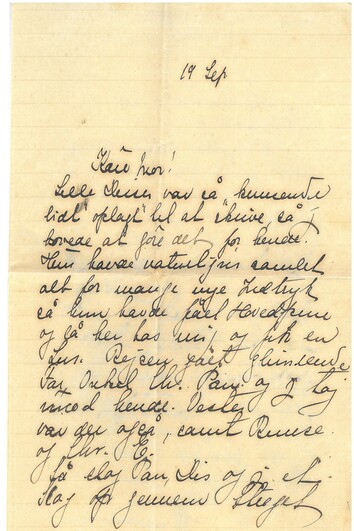 19 Sep
Kære Mor!
Lille Lisse var så "kunmende
lidt" oplagt til at skrive, så j
lovede at gøre det for hende.
Hun havde naturligvis samlet
alt for mange nye Indtryk
så hun havde fået Hovedpine
og så her hos mig og fik en
Lur. Rejsen gået glimrende
Far, Onkel Chr. Pan, og J tog
imod hende. Vester
var der også, samt Presse.
og Chr. E.
så slog Pan, Lis og j. et
Slag op gennem Strøget